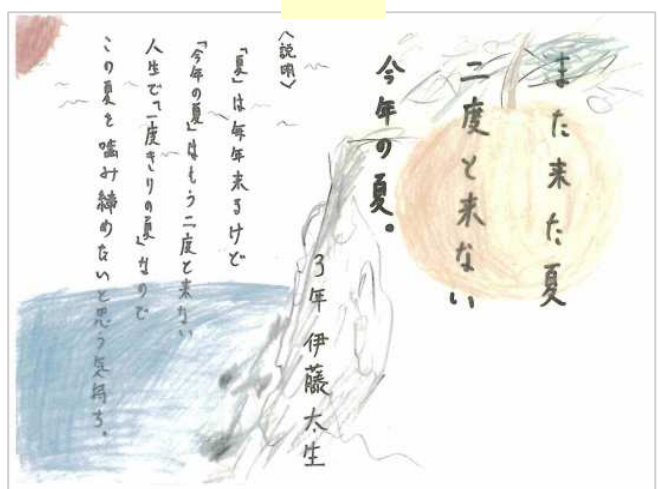 また来た夏
二度と来ない
今年の夏。
3年 伊藤太生
〈説明〉
「夏」は毎年来るけど
「今年の夏」はもう二度と来ない
人生で「一度きりの夏」なので
この夏を噛み締めたいと思う気持ち。